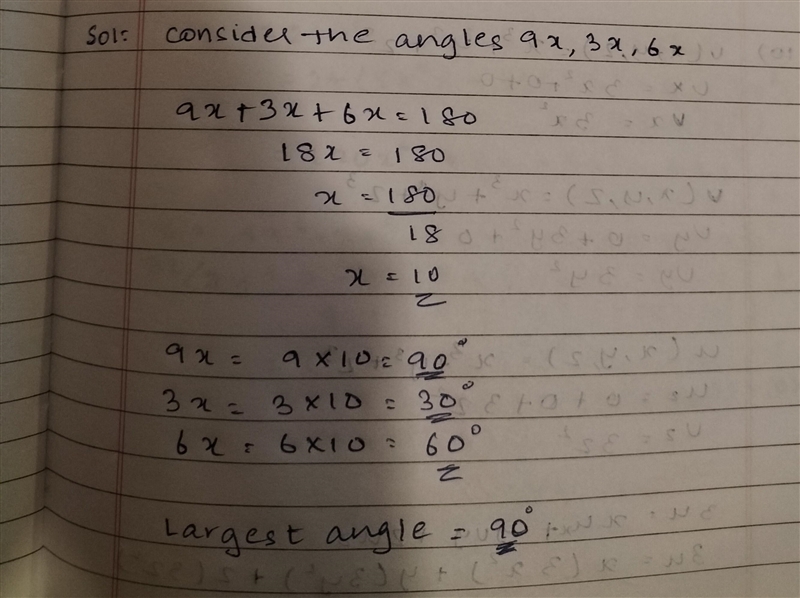 Sol: Consider the angles 9x, 3x, 6x
9x + 3x + 6x = 180
18x = 180
x = 180
18
x = 10
9x = 9 × 10 = 90°
3x = 3 × 10 = 30°
6x = 6 × 10 = 60°
Largest angle = 90°